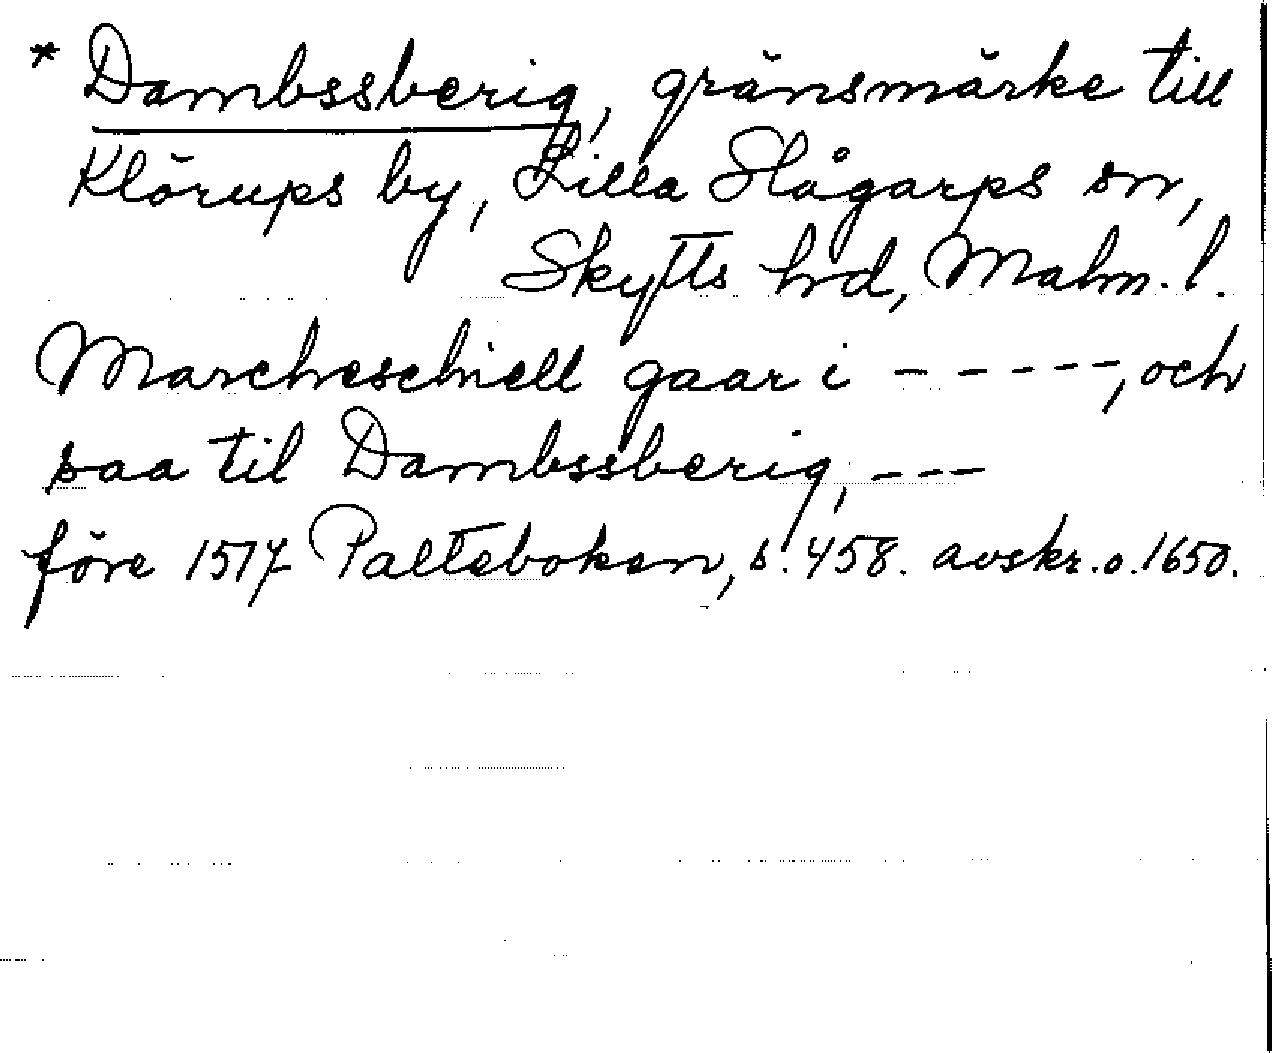 * Dambssberig, gränsmärke till
Klörups by, Lilla Slågarps sn,
Skytts hrd, Malm. l.
Marcheschiell gaar i - - - - -, och
saa til Dambssberig, - - -
före 1517 Palteboken, s. 458. avskr. o. 1650.